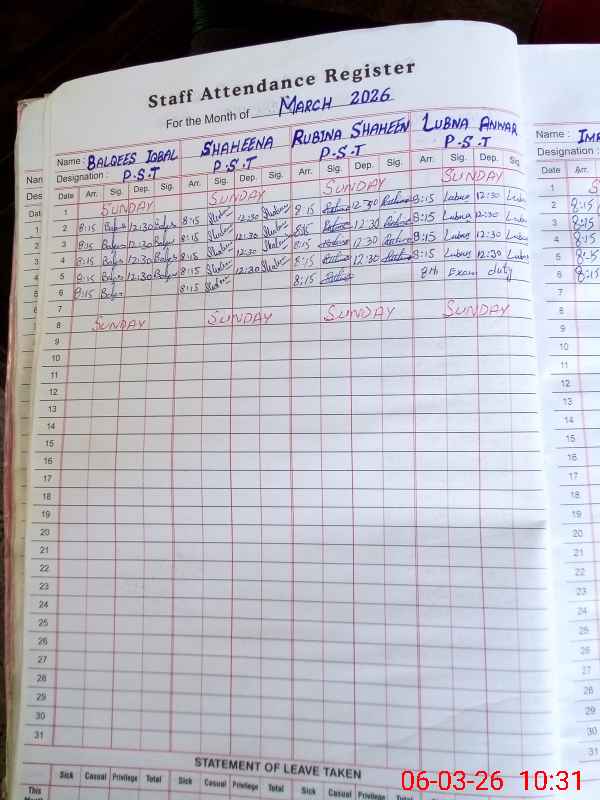 Staff Attendance Register
For the Month of MARCH 2026
Name : BALQEES IQBAL SHAHEENA RUBINA SHAHEEN LUBNA ANWAR
Designation : P.S.T P.S.T P.S.T P.S.T
Date Arr. Sig. Dep. Sig. Arr. Sig. Dep. Sig. Arr. Sig. Dep. Sig. Arr. Sig. Dep. Sig.
1 SUNDAY SUNDAY SUNDAY SUNDAY
2 8:15 12:30 8:15 12:30 8:15 12:30 8:15 Lubna 12:30
3 8:15 12:30 8:15 12:30 8:15 12:30 8:15 Lubna 12:30
4 8:15 12:30 8:15 12:30 8:15 12:30 8:15 Lubna 12:30
5 8:15 12:30 8:15 12:30 8:15 12:30 8:15 Lubna 12:30
6 8:15 8:15 8:15 8th Exam duty
7
8 SUNDAY SUNDAY SUNDAY SUNDAY
9
10
11
12
13
14
15
16
17
18
19
20
21
22
23
24
25
26
27
28
29
30
31
STATEMENT OF LEAVE TAKEN
Sick Casual Privilege Total Sick Casual Privilege Total Sick Casual Privilege Total
This
Name :
Designation :
Date Arr.
1
2 8:15
3 8:15
4 8:15
5 8:15
6 8:15
7
8
9
10
11
12
13
14
15
16
17
18
19
20
21
22
23
24
25
26
27
28
29
30
31
06-03-26 10:31